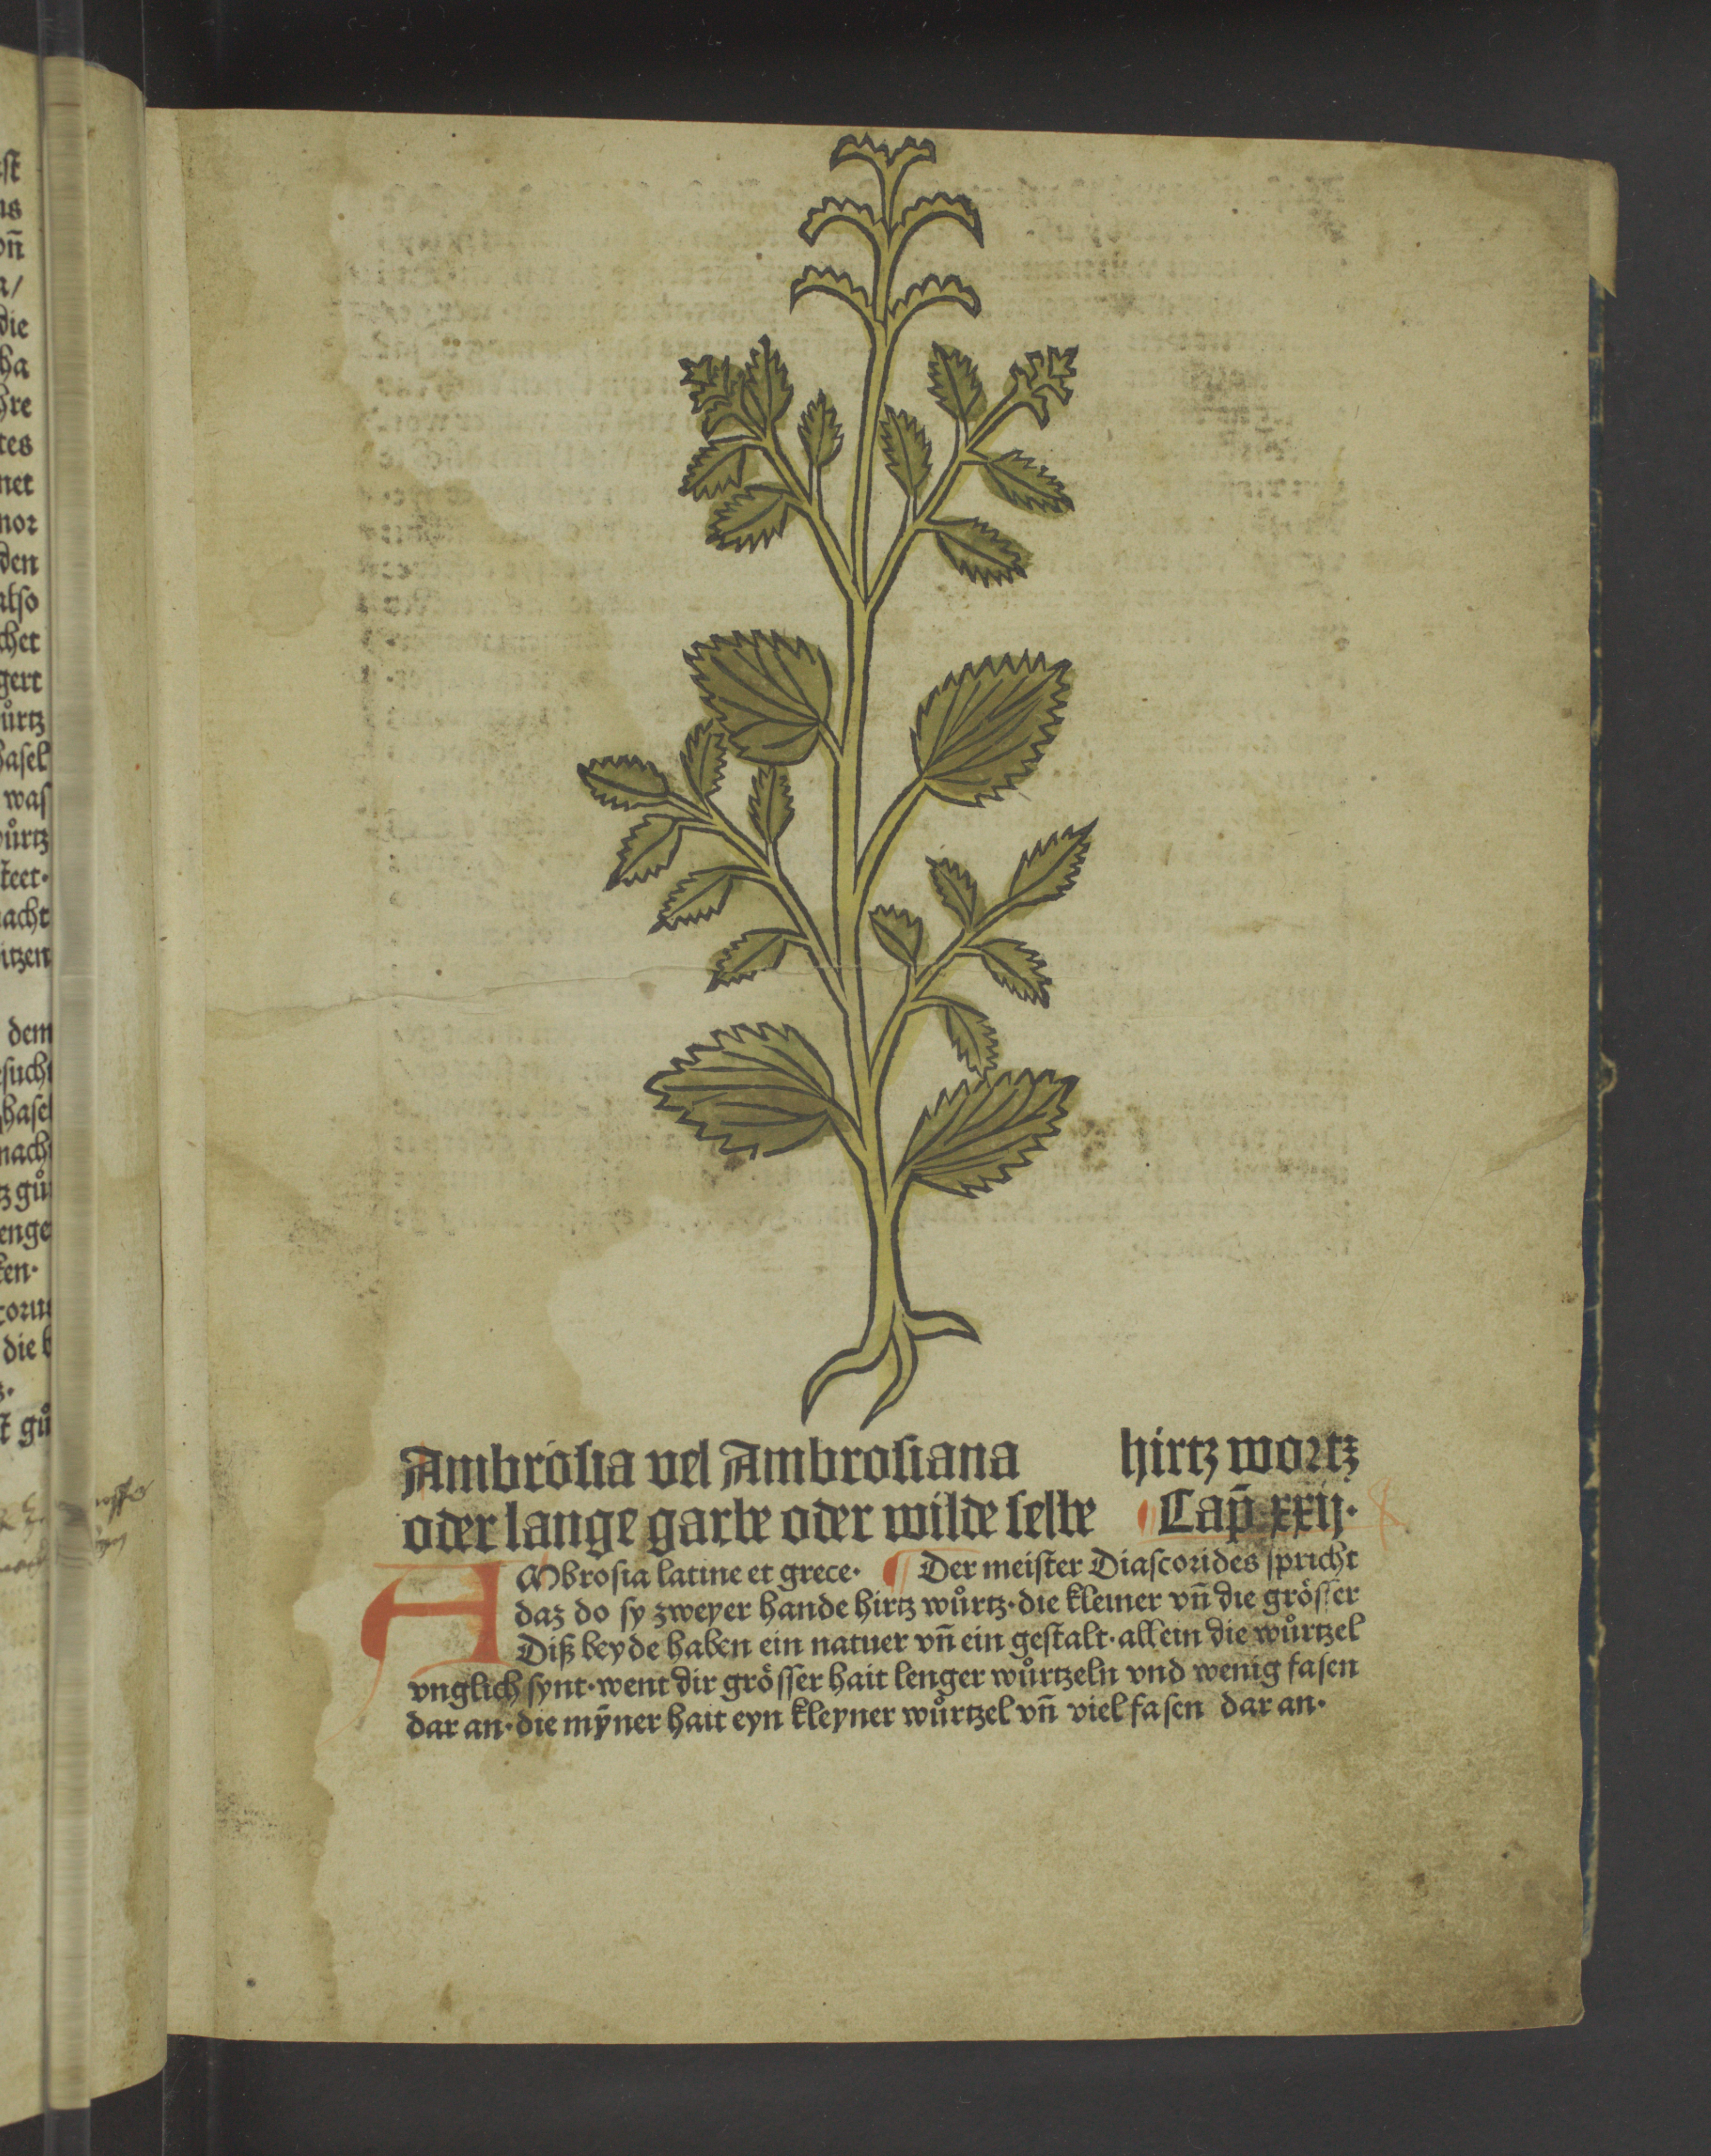 st
ns
oñ
a/
die
ha
hre
tes
net
nor
den
also
chet
gert
ůrtz
hasel
was
ůrtz
steet·
acht
itzen
dem
such
hasel
nach
gů
enge
ken·
die
gů
Ambrosia vel Ambrosiana hirtz wortz
oder lange garbe oder wilde selbe ¶ Cap̃ xxij·
AMbrosia latine et grece· ¶ Der meister Diascorides spricht
daz do sy zweyer hande hirtz wůrtz·die kleiner vñ die grösser
Diß beyde haben ein natuer vñ ein gestalt·allein die wůrtzel
vnglich synt·went dir grösser hait lenger wůrtzeln vnd wenig fasen
dar an·die mÿner hait eyn kleyner wůrtzel vñ viel fasen dar an·